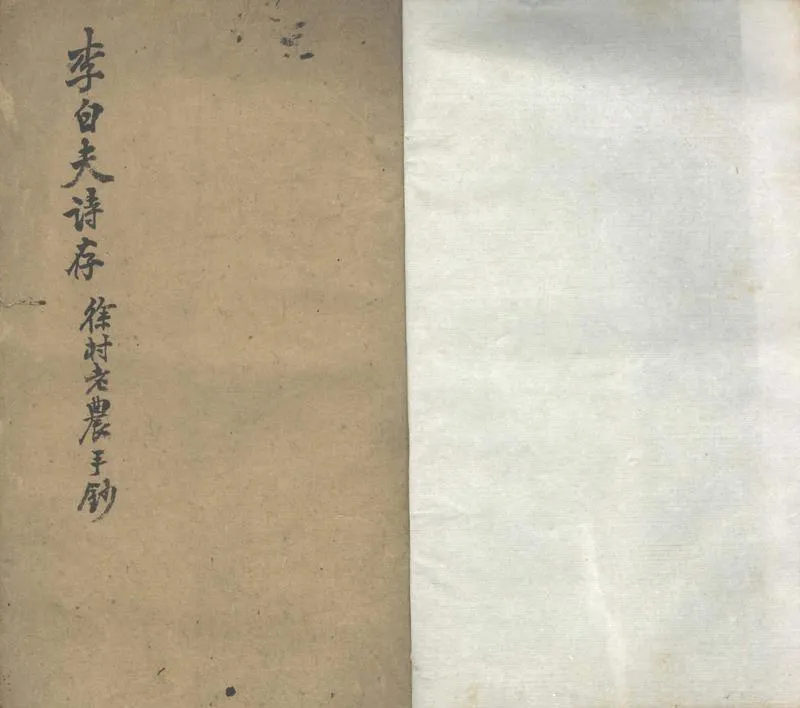 李白夫詩存 徐村老農手鈔